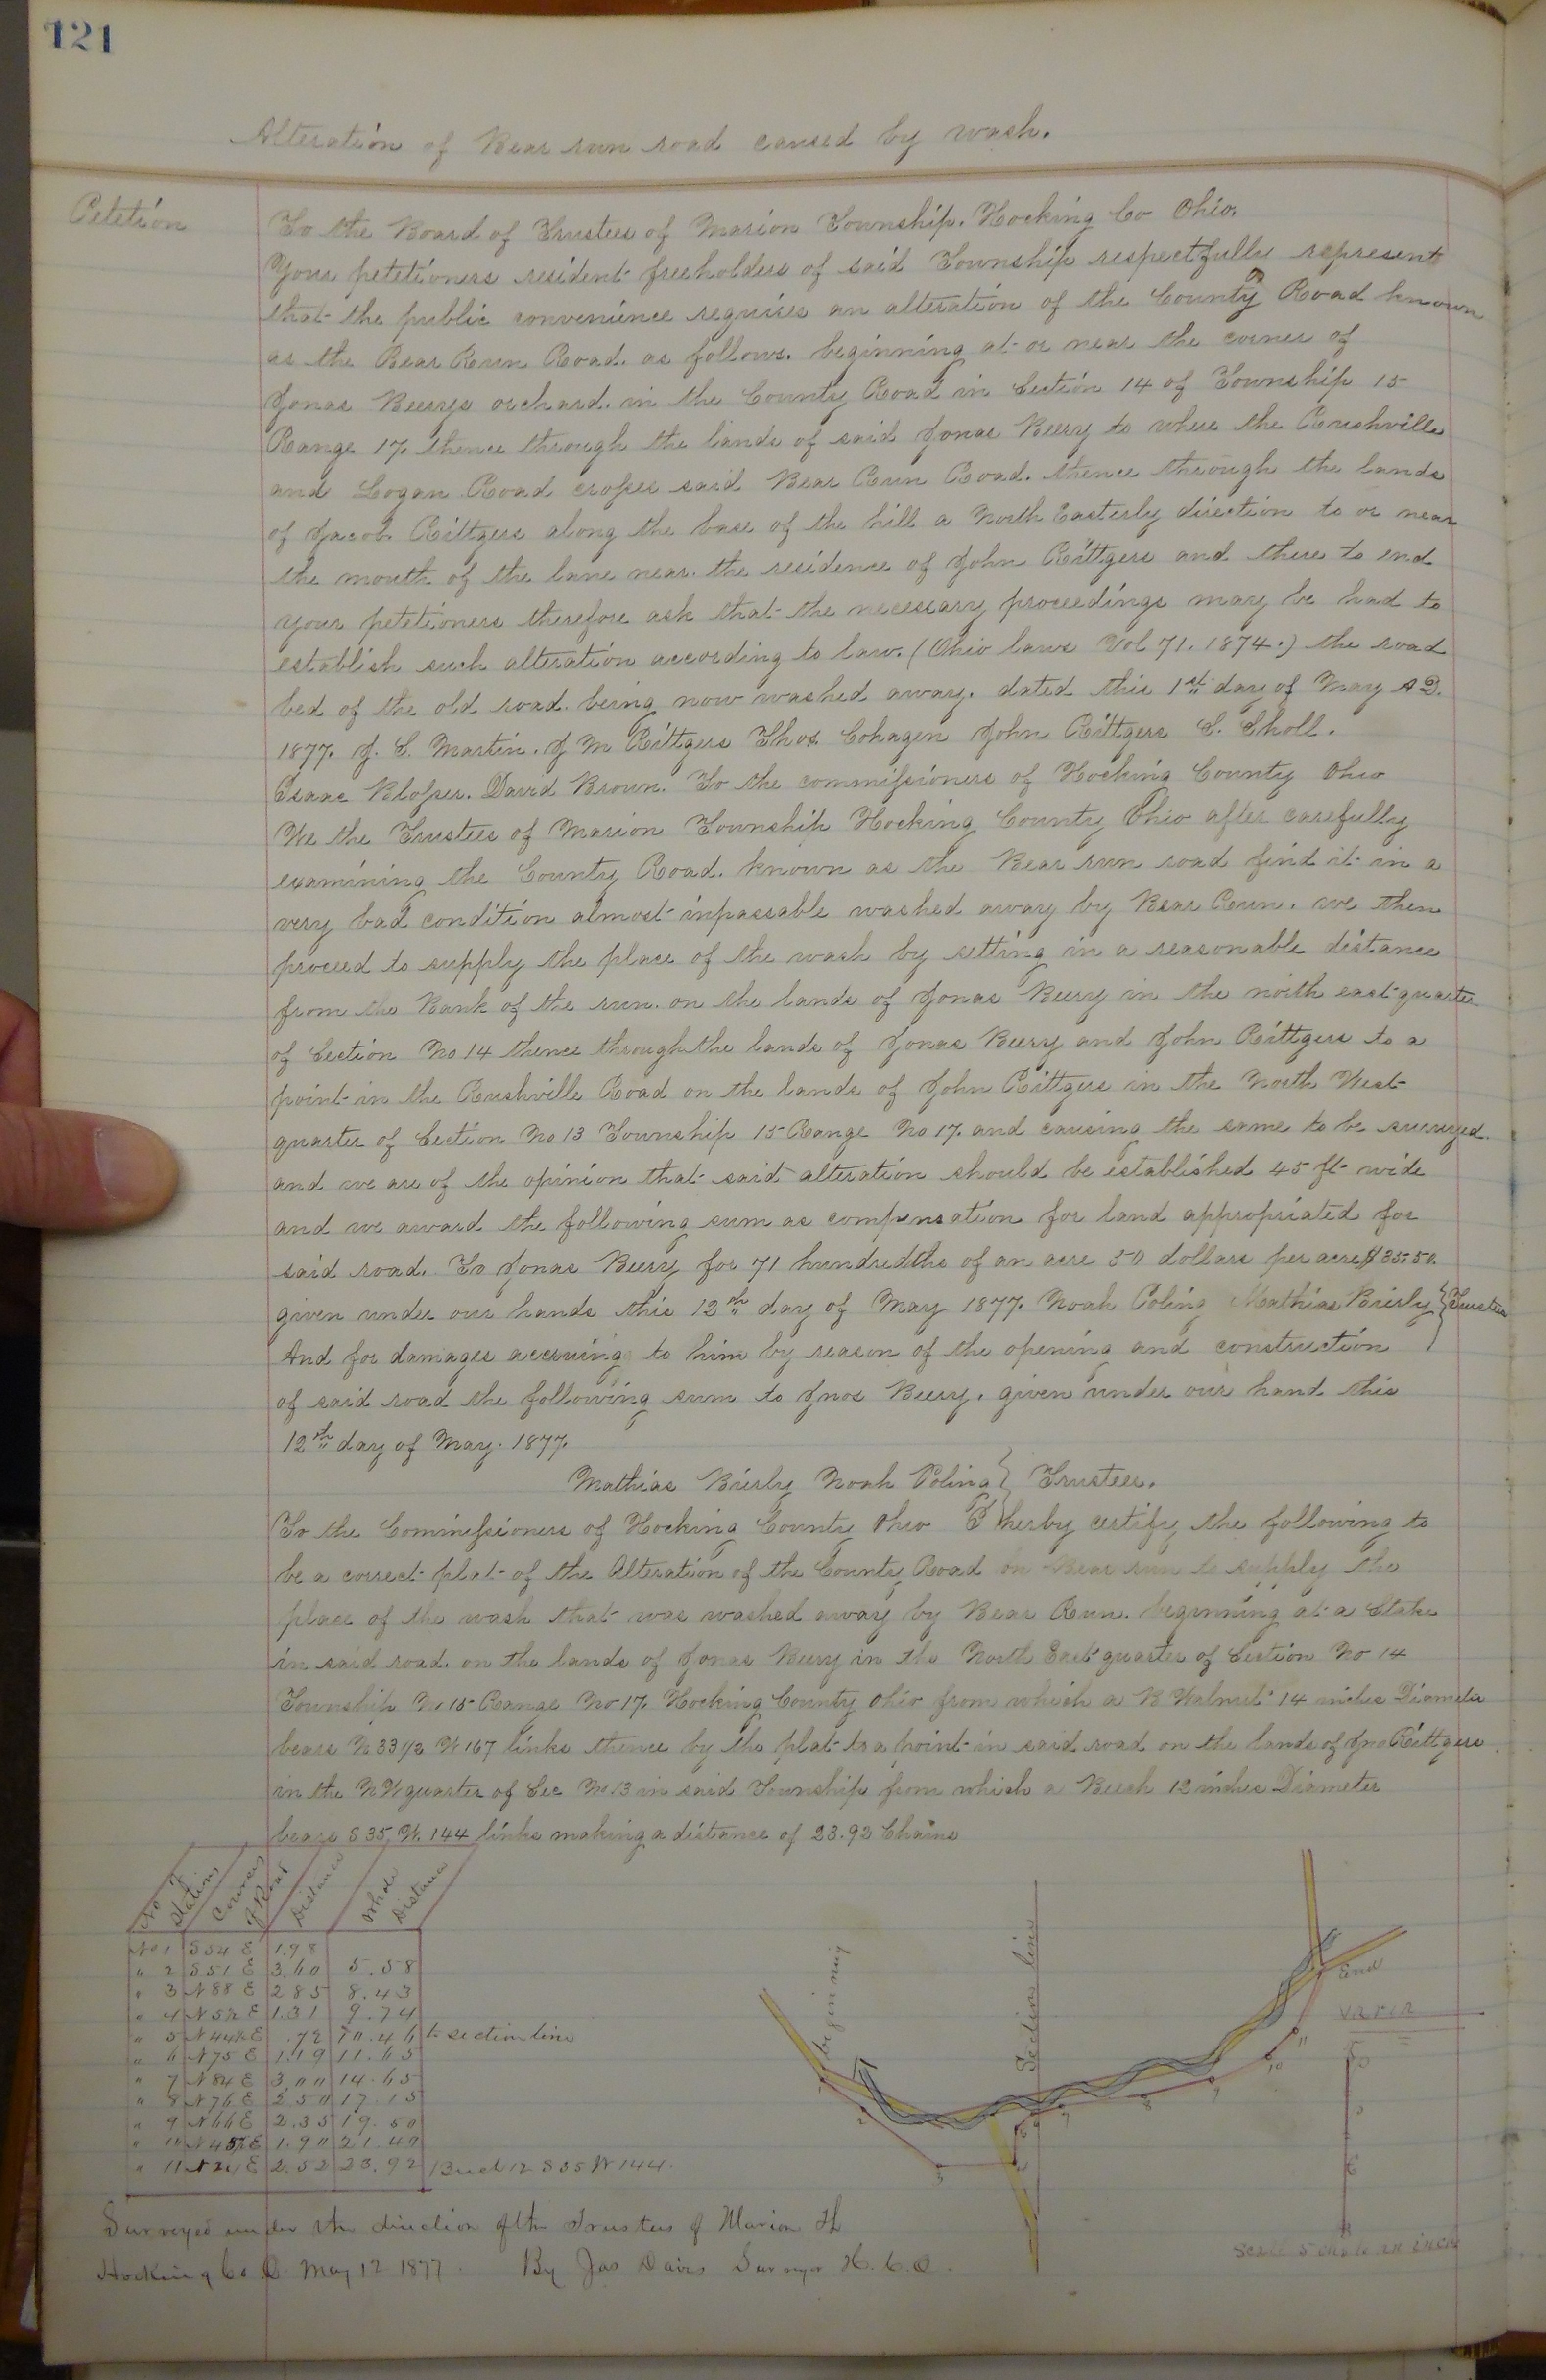 121
Alteration of Bear run road caused by wash.
Petetion
To the Board of Trustees of Marion Township. Hocking Co Ohio.
Your petetioners resident freeholders of said Township respectfully represent
that the public convenience requires an alteration of the County Road known
as the Bear Run Road. as follows. beginning at or near the corner of
Jonas Beerys orchard. in the County Road in Section 14 of Township 15
Range 17. thence through the lands of said Jonas Beery to where the Rushville
and Logan Road crosses said Bear Run Road. thence through the lands
of Jacob Rittgers along the base of the hill a North Easterly direction to or near
the mouth of the lane near the residence of John Rittgers and there to end
your petetioners therefore ask that the necessary proceedings may be had to
establish such alteration according to law. (Ohio laws Vol 71. 1874.) the road
bed of the old road being now washed away. dated this 1st day of May A D.
1877. J. S. Martin. J M Rittgers Thos Cohagen John Rittgers S. Sholl.
Isaac Blosser. David Brown. To the commissioners of Hocking County Ohio
We the Trustees of Marion Township Hocking County Ohio after carefully
examining the County Road. known as the Bear run road find it in a
very bad condition almost inpassable washed away by Bear Run. we then
proceed to supply the place of the wash by setting in a reasonable distance
from the Bank of the run. on the lands of Jonas Beery in the north east quarter
of Section No 14 thence through the lands of Jonas Beery and John Rittgers to a
point in the Rushville Road on the lands of John Rittgers in the North West
quarter of Section No 13 Township 15 Range No 17. and causing the same to be surveyed.
and we are of the opinion that said alteration should be established 45 ft wide
and we award the following sum as compensation for land appropriated for
said road. To Jonas Beery for 71 hundredths of an acre 50 dollars per acre $35.50.
given under our hands this 12th day of May 1877. Noah Poling Mathias Brierly } Trustees
And for damages accruing to him by reason of the opening and construction
of said road the following sum to Jnos Beery. given under our hand this
12th day of May. 1877.
Mathias Brierly Noah Poling } Trustees.
To the Commissioners of Hocking County Ohio I herby certify the following to
be a correct plat of the Alteration of the County Road on Bear run to supply the
place of the wash that was washed away by Bear Run. beginning at a Stake
in said road. on the lands of Jonas Beery in the North East quarter of Section No 14
Township No 15 Range No 17. Hocking County Ohio from which a B Walnut 14 inches Diameter
bears N 33 1/2 W 167 links thence by the plat to a point in said road on the lands of Jno Rittgers
in the N W quarter of Sec No 13 in said Township from which a Beech 12 inches Diameter
bears S 35 W. 144 links making a distance of 23.92 Chains
No of Stations Courses of Road Distance Whole Distance
No 1 S 54 E 1.98
" 2 S 51 E 3.60 5.58
" 3 N 88 E 2 85 8.43
" 4 N 5½ E 1.31 9.74
" 5 N 44½ E .72 10.46 to section line
" 6 N 75 E 1.19 11.65
" 7 N 84 E 3.00 14.65
" 8 N 76 E 2.50 17.15
" 9 N 66 E 2.35 19.50
" 10 N 45½ E 1.90 21.40
" 11 N 21 E 2.52 23.92 Buch 12 S 35 W 144.
begining
Section line
End
Scale 5 chains an inch
Surveyed under the direction of the Trustees of Marion Tp
Hocking Co O. May 12 1877. By Jas Davis Surveyor H. C. O.